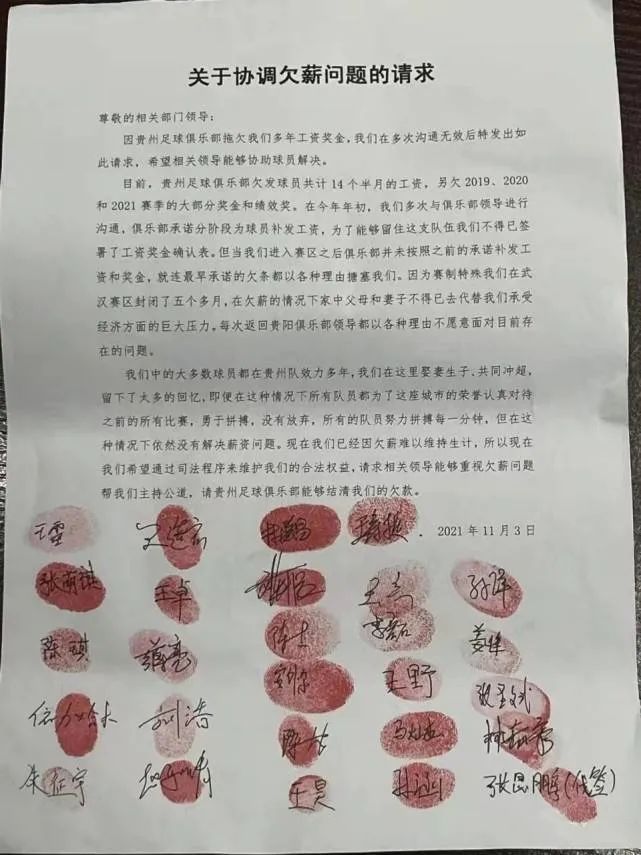 关于协调欠薪问题的请求
尊敬的相关部门领导：
因贵州足球俱乐部拖欠我们多年工资奖金，我们在多次沟通无效后特发出如
此请求，希望相关领导能够协助球员解决。
目前，贵州足球俱乐部欠发球员共计14个半月的工资，另欠2019、2020
和2021赛季的大部分奖金和绩效奖。在今年年初，我们多次与俱乐部领导进行
沟通，俱乐部承诺分阶段为球员补发工资，为了能够留住这支队伍我们不得已签
署了工资奖金确认表。但当我们进入赛区之后俱乐部并未按照之前的承诺补发工
资和奖金，就连最早承诺的欠条都以各种理由搪塞我们。因为赛制特殊我们在武
汉赛区封闭了五个多月，在欠薪的情况下家中父母和妻子不得已去代替我们承受
经济方面的巨大压力。每次返回贵阳俱乐部领导都以各种理由不愿意面对目前存
在的问题。
我们中的大多数球员都在贵州队效力多年，我们在这里娶妻生子、共同冲超，
留下了太多的回忆，即便在这种情况下所有队员都为了这座城市的荣誉认真对待
之前的所有比赛，勇于拼搏，没有放弃，所有的队员努力拼搏每一分钟，但在这
种情况下依然没有解决薪资问题。现在我们已经因欠薪难以维持生计，所以现在
我们希望通过司法程序来维护我们的合法权益，请求相关领导能够重视欠薪问题
帮我们主持公道，请贵州足球俱乐部能够结清我们的欠款。
2021年11月3日
王卓
陈琪
刘浩
王野
朱征宇 王昊 张昆鹏（代签）